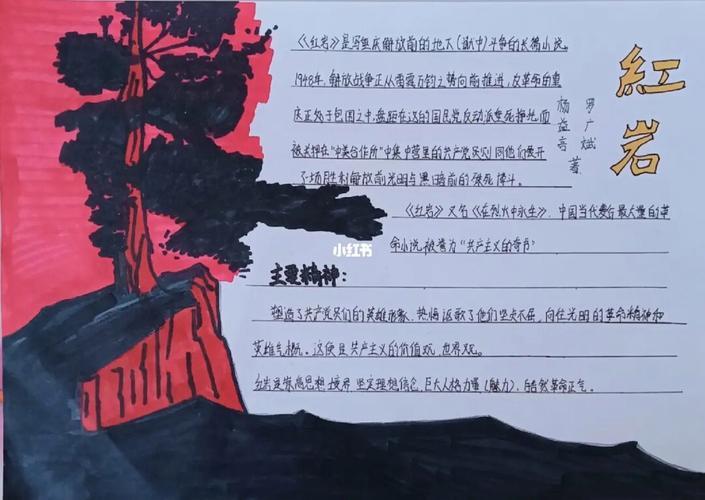 《《红岩》是写重庆解放前的地下(狱中)斗争的长篇小说。
1948年，解放战争正从雷霆万钧之势向前推进，反革命的重
庆正处于包围之中，盘踞在这的国民党反动派垂死挣扎，而
被关押在"中美合作所"中集中营里的共产党员则同他们展开
了一场胜利解放前光明与黑暗前的殊死搏斗。
《红岩》又名《在烈火中永生》，中国当代发行量最大的革
命小说，被誉为"共产主义的奇书"
紅岩
罗广斌
杨益言 著
小红书
主要精神：
塑造了共产党员们的英雄形象，热情讴歌了他们坚贞不屈，向往光明的革命精神和
英雄气概。这便是共产主义的价值观，世界观。
崇高思想境界 坚定理想信念，巨大人格力量(魅力)，浩然革命正气。